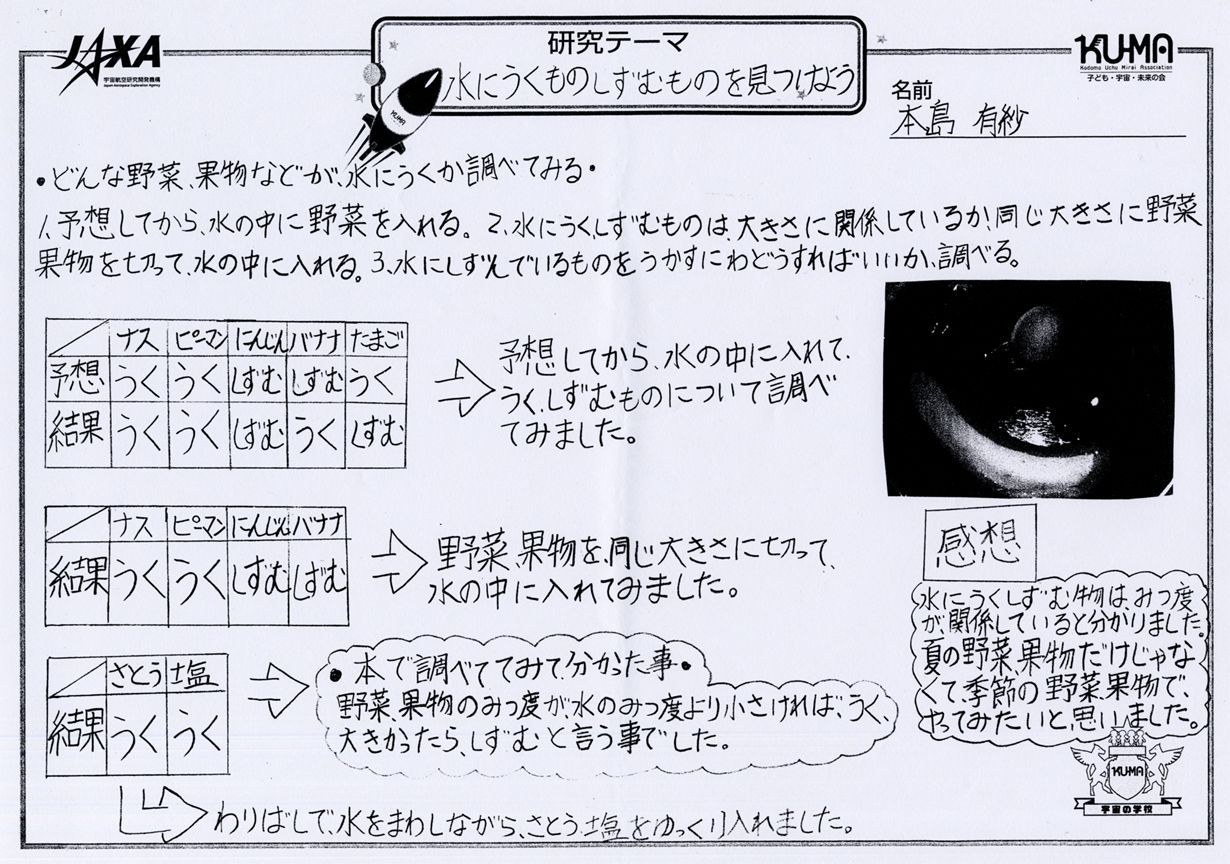 JAXA
宇宙航空研究開発機構
Japan Aerospace Exploration Agency
研究テーマ
水にうくものしずむものを見つけよう
KUMA
KU-MA
Kodomo Uchu Mirai Association
子ども・宇宙・未来の会
名前
本島 有紗
・どんな野菜、果物などが、水にうくか調べてみる・
1、予想してから、水の中に野菜を入れる。2、水にうく、しずむものは、大きさに関係しているか、同じ大きさに野菜
果物を切って、水の中に入れる。3、水にしずんでいるものをうかすにわどうすればいいか、調べる。
ナス ピーマン にんじん バナナ たまご
予想 うく うく しずむ しずむ うく
結果 うく うく しずむ うく しずむ
予想してから、水の中に入れて、
うく、しずむものについて調べ
てみました。
ナス ピーマン にんじん バナナ
結果 うく うく しずむ しずむ
野菜、果物を、同じ大きさに切って、
水の中に入れてみました。
感想
水にうくしずむ物は、みつ度
が、関係していると分かりました。
夏の野菜、果物だけじゃな
くて、季節の野菜、果物で、
やってみたいと、思いました。
さとう 塩
結果 うく うく
・本で調べててみて分かった事・
野菜、果物のみつ度が、水のみつ度より小さければ、うく、
大きかったら、しずむと言う事でした。
わりばしで、水をまわしながら、さとう、塩をゆっくり入れました。
KU-MA
宇宙の学校